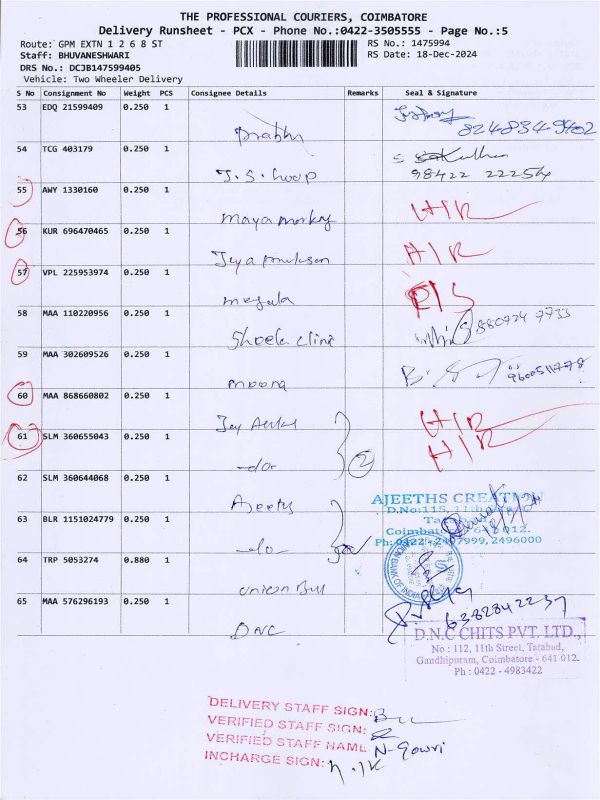 THE PROFESSIONAL COURIERS, COIMBATORE
Delivery Runsheet - PCX - Phone No.:0422-3505555 - Page No.:5
Route: GPM EXTN 1 2 6 8 ST
RS No.: 1475994
Staff: BHUVANESHWARI
RS Date: 18-Dec-2024
DRS No.: DCJB147599405
Vehicle: Two Wheeler Delivery
S No Consignment No Weight PCS Consignee Details Remarks Seal & Signature
53 EDQ 21599409 0.250 1 Prabhu 8248349402
54 TCG 403179 0.250 1 J.S. 98422 22254
55 AWY 1330160 0.250 1 Maya H/R
56 KUR 696470465 0.250 1 Jeya H/R
57 VPL 225953974 0.250 1 Megala P/S
58 MAA 110220956 0.250 1 Sheela clinic 880724 7733
59 MAA 302609526 0.250 1 Meena 9600511778
60 MAA 868660802 0.250 1 Jey H/R
61 SLM 360655043 0.250 1 -do- H/R
2
62 SLM 360644068 0.250 1 Ajeeths
AJEETHS CREATION
D.No:115, 11th
63 BLR 1151024779 0.250 1 -do-
Coimbatore - 641 012.
Ph: 0422 - 2497999, 2496000
64 TRP 5053274 0.880 1 Union
UNION BANK OF INDIA
65 MAA 576296193 0.250 1 DNC
6382842237
D.N.C CHITS PVT. LTD.,
No : 112, 11th Street, Tatabad,
Gandhipuram, Coimbatore - 641 012.
Ph : 0422 - 4983422
DELIVERY STAFF SIGN:
VERIFIED STAFF SIGN:
VERIFIED STAFF NAME N-Gowri
INCHARGE SIGN: